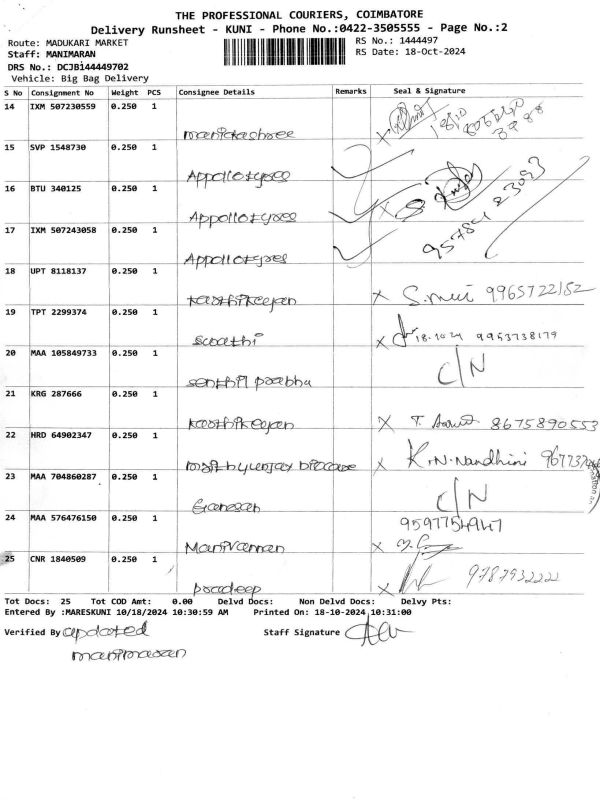 THE PROFESSIONAL COURIERS, COIMBATORE
Delivery Runsheet - KUNI - Phone No.:0422-3505555 - Page No.:2
Route: MADUKARI MARKET
Staff: MANIMARAN
DRS No.: DCJB144449702
Vehicle: Big Bag Delivery
RS No.: 1444497
RS Date: 18-Oct-2024
S No Consignment No Weight PCS Consignee Details Remarks Seal & Signature
14 IXM 507230559 0.250 1
18/10
15 SVP 1548730 0.250 1
Appollo tyres
16 BTU 340125 0.250 1
Appollo tyres
17 IXM 507243058 0.250 1
Appollo tyres
18 UPT 8118137 0.250 1
karthikeyan X 9965722152
19 TPT 2299374 0.250 1
swathi X 18.10.24 9953738179
20 MAA 105849733 0.250 1
senthil prabhu C/N
21 KRG 287666 0.250 1
karthikeyan X 8675890553
22 HRD 64902347 0.250 1
X K.N.Nandhini
23 MAA 704860287 0.250 1
Ganesan C/N
24 MAA 576476150 0.250 1
9597754947
Manivannan X
25 CNR 1840509 0.250 1
pradeep X 9787932222
Tot Docs: 25 Tot COD Amt: 0.00 Delvd Docs: Non Delvd Docs: Delvy Pts:
Entered By :MARESKUNI 10/18/2024 10:30:59 AM Printed On: 18-10-2024 10:31:00
Verified By updated Staff Signature
manimaran